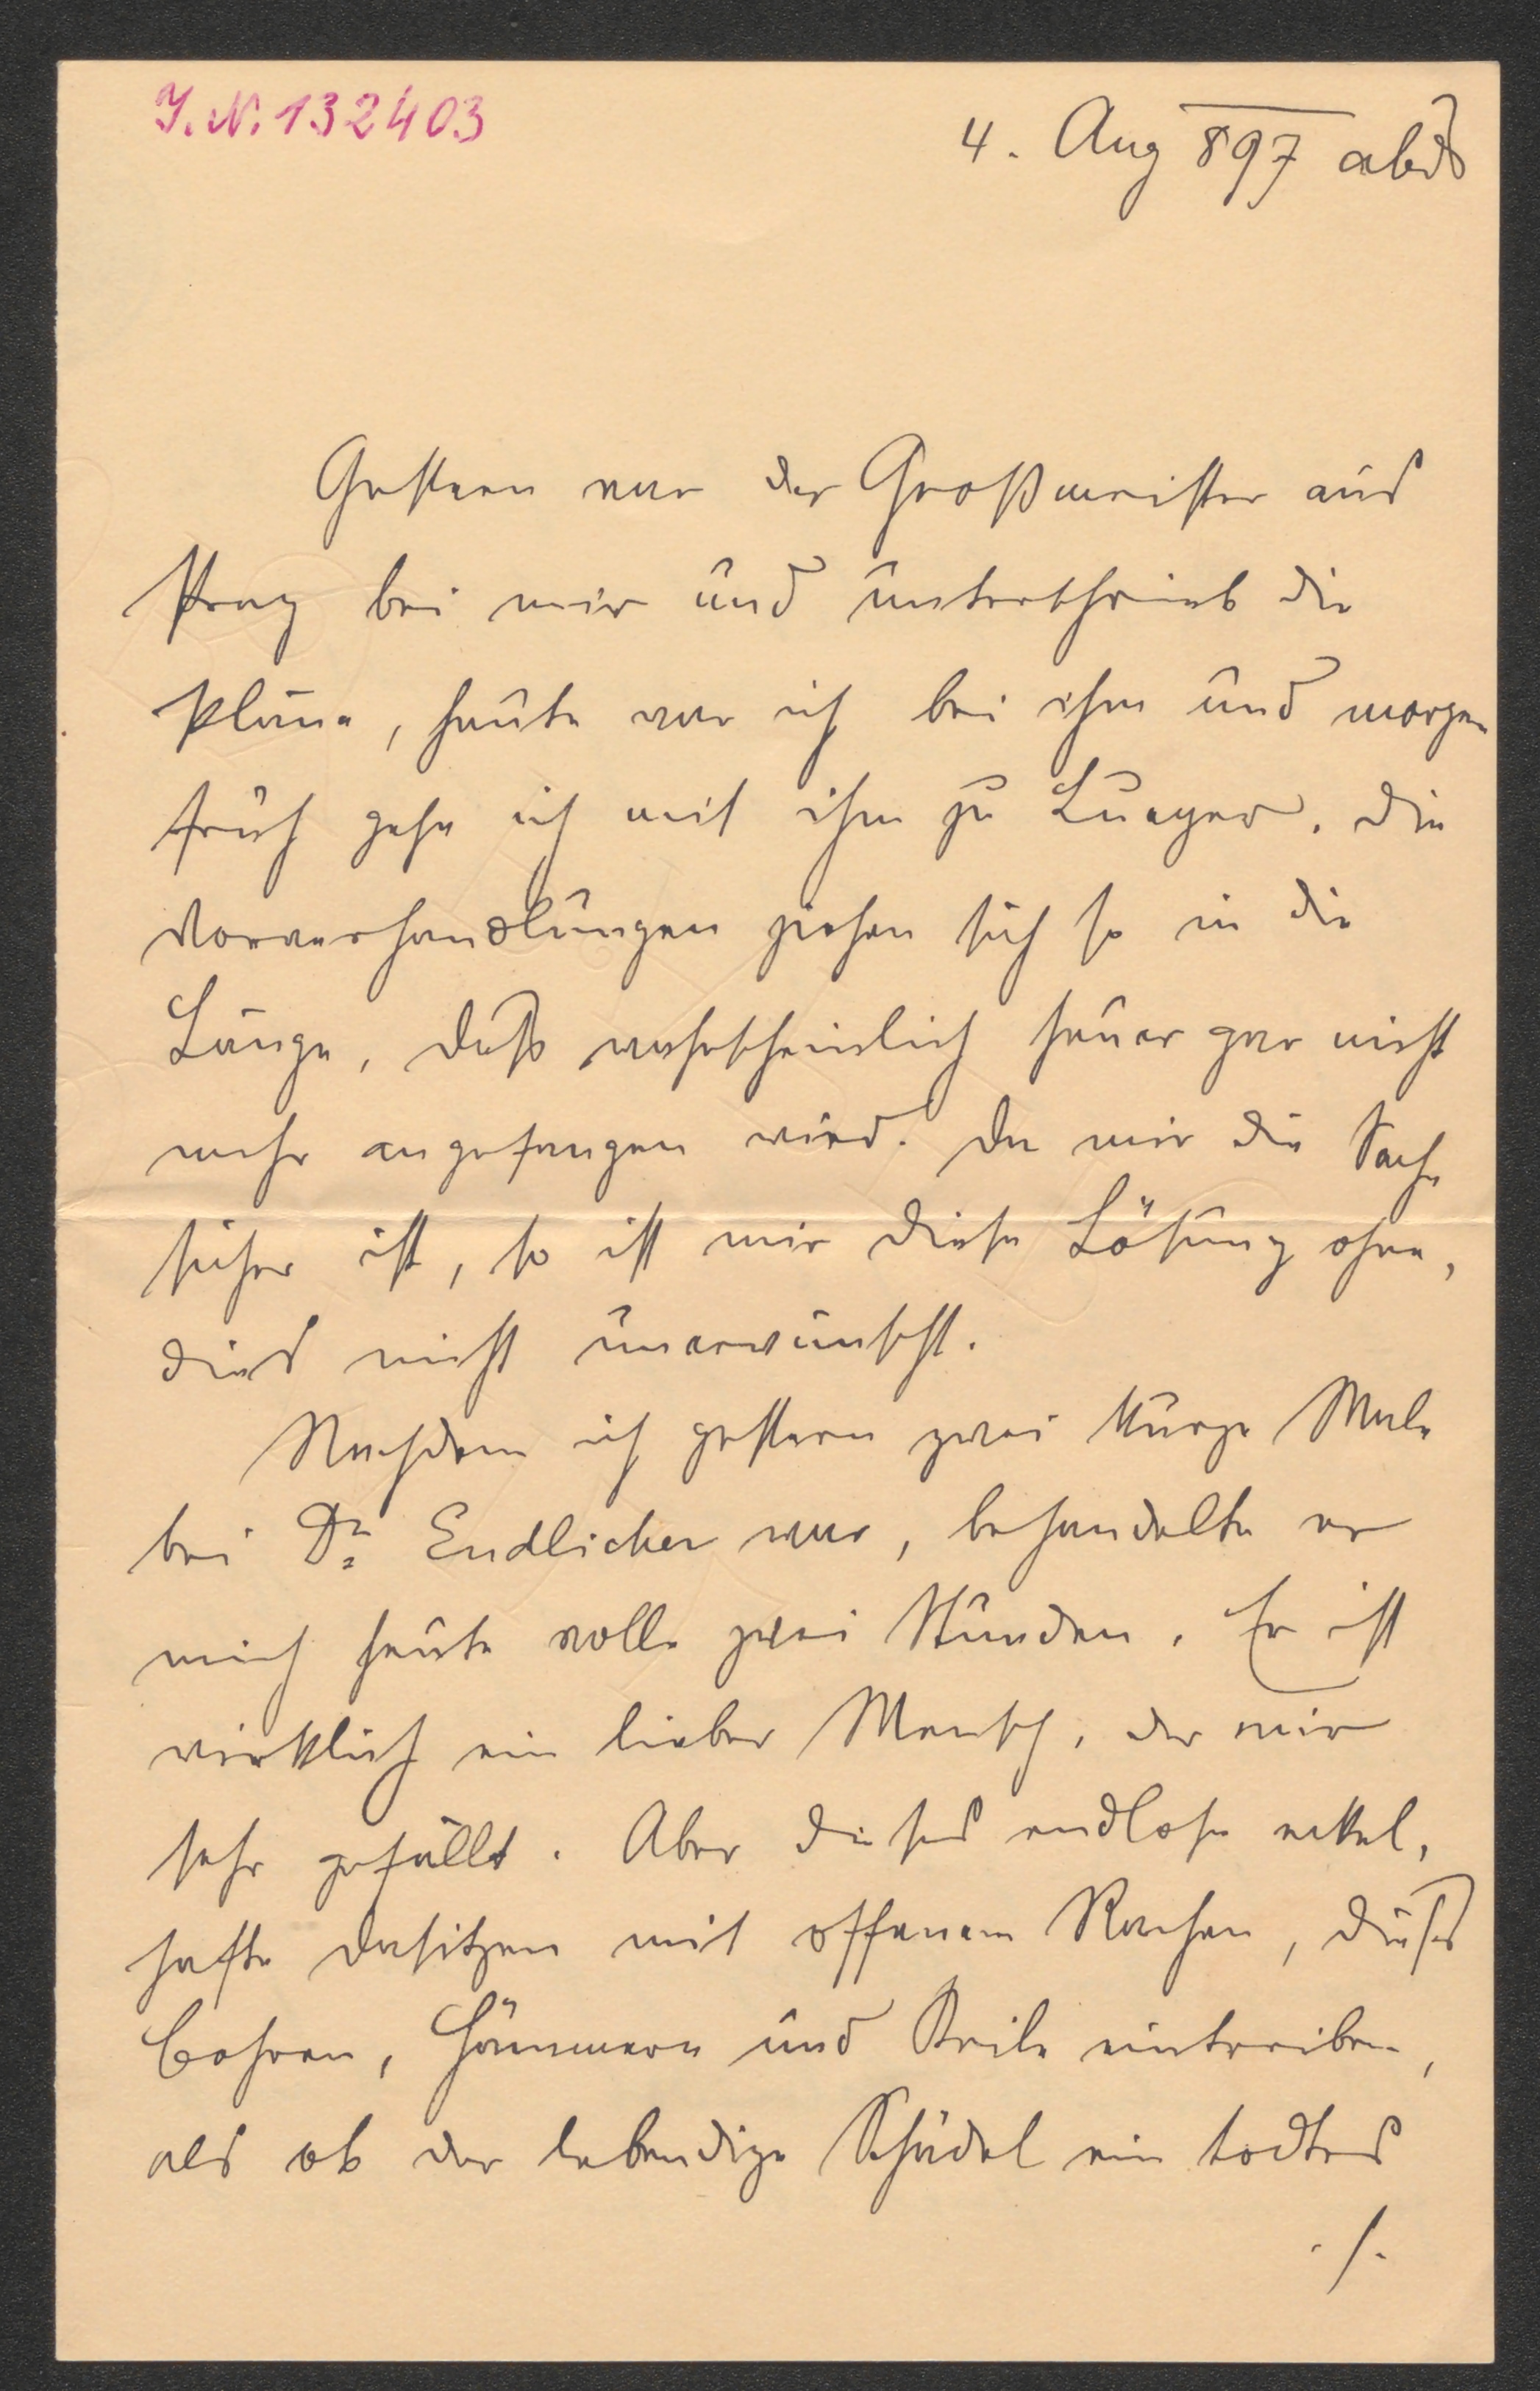 J. N. 132403
4. Aug 897 abds
Gestern war der Großmeister aus
Prag bei mir und unterschrieb die
Pläne, heute war ich bei ihm und morgen
früh gehe ich mit ihm zu Lueger. Die
Vorverhandlungen ziehen sich so in die
Länge, daß wahrscheinlich heuer gar nicht
mehr angefangen wird. Da mir die Sache
sicher ist, so ist mir diese Lösung ohne,
dies nicht unerwünscht.
Nachdem ich gestern zwei kurze Male
bei Dr. Endlicher war, behandelte er
mich heute volle zwei Stunden. Er ist
wirklich ein lieber Mensch, der mir
sehr gefällt. Aber dieses endlose eckel,
hafte Dasitzen mit offenem Rachen, dieses
Bohren, Hämmern und Keile eintreiben,
als ob der lebendige Schädel ein todtes
./.